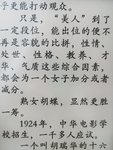 子更能打动观众。
只是，“美人”到了
一定段位，能出位的便不
再是容貌的比拼，性情、
处世、性格、教养、才
华、气质这些综合因素，
都会为一个女子加分或者
减分。
熟女胡蝶，显然更胜
一筹。
1924年，中华电影学
校招生，一千多人应试，
一个叫胡瑞华的十六